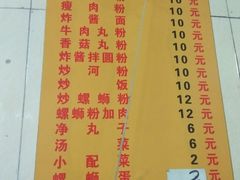 瘦肉粉 10元
炸酱面 10元
牛肉丸粉 10元
香菇丸粉 10元
炸酱拌圆粉 10元
炒河粉 10元
炒饭 10元
炒螺蛳粉 12元
螺蛳粉加肉 12元
净丸子 6元
汤菜 6元
小配菜 2元
蛋